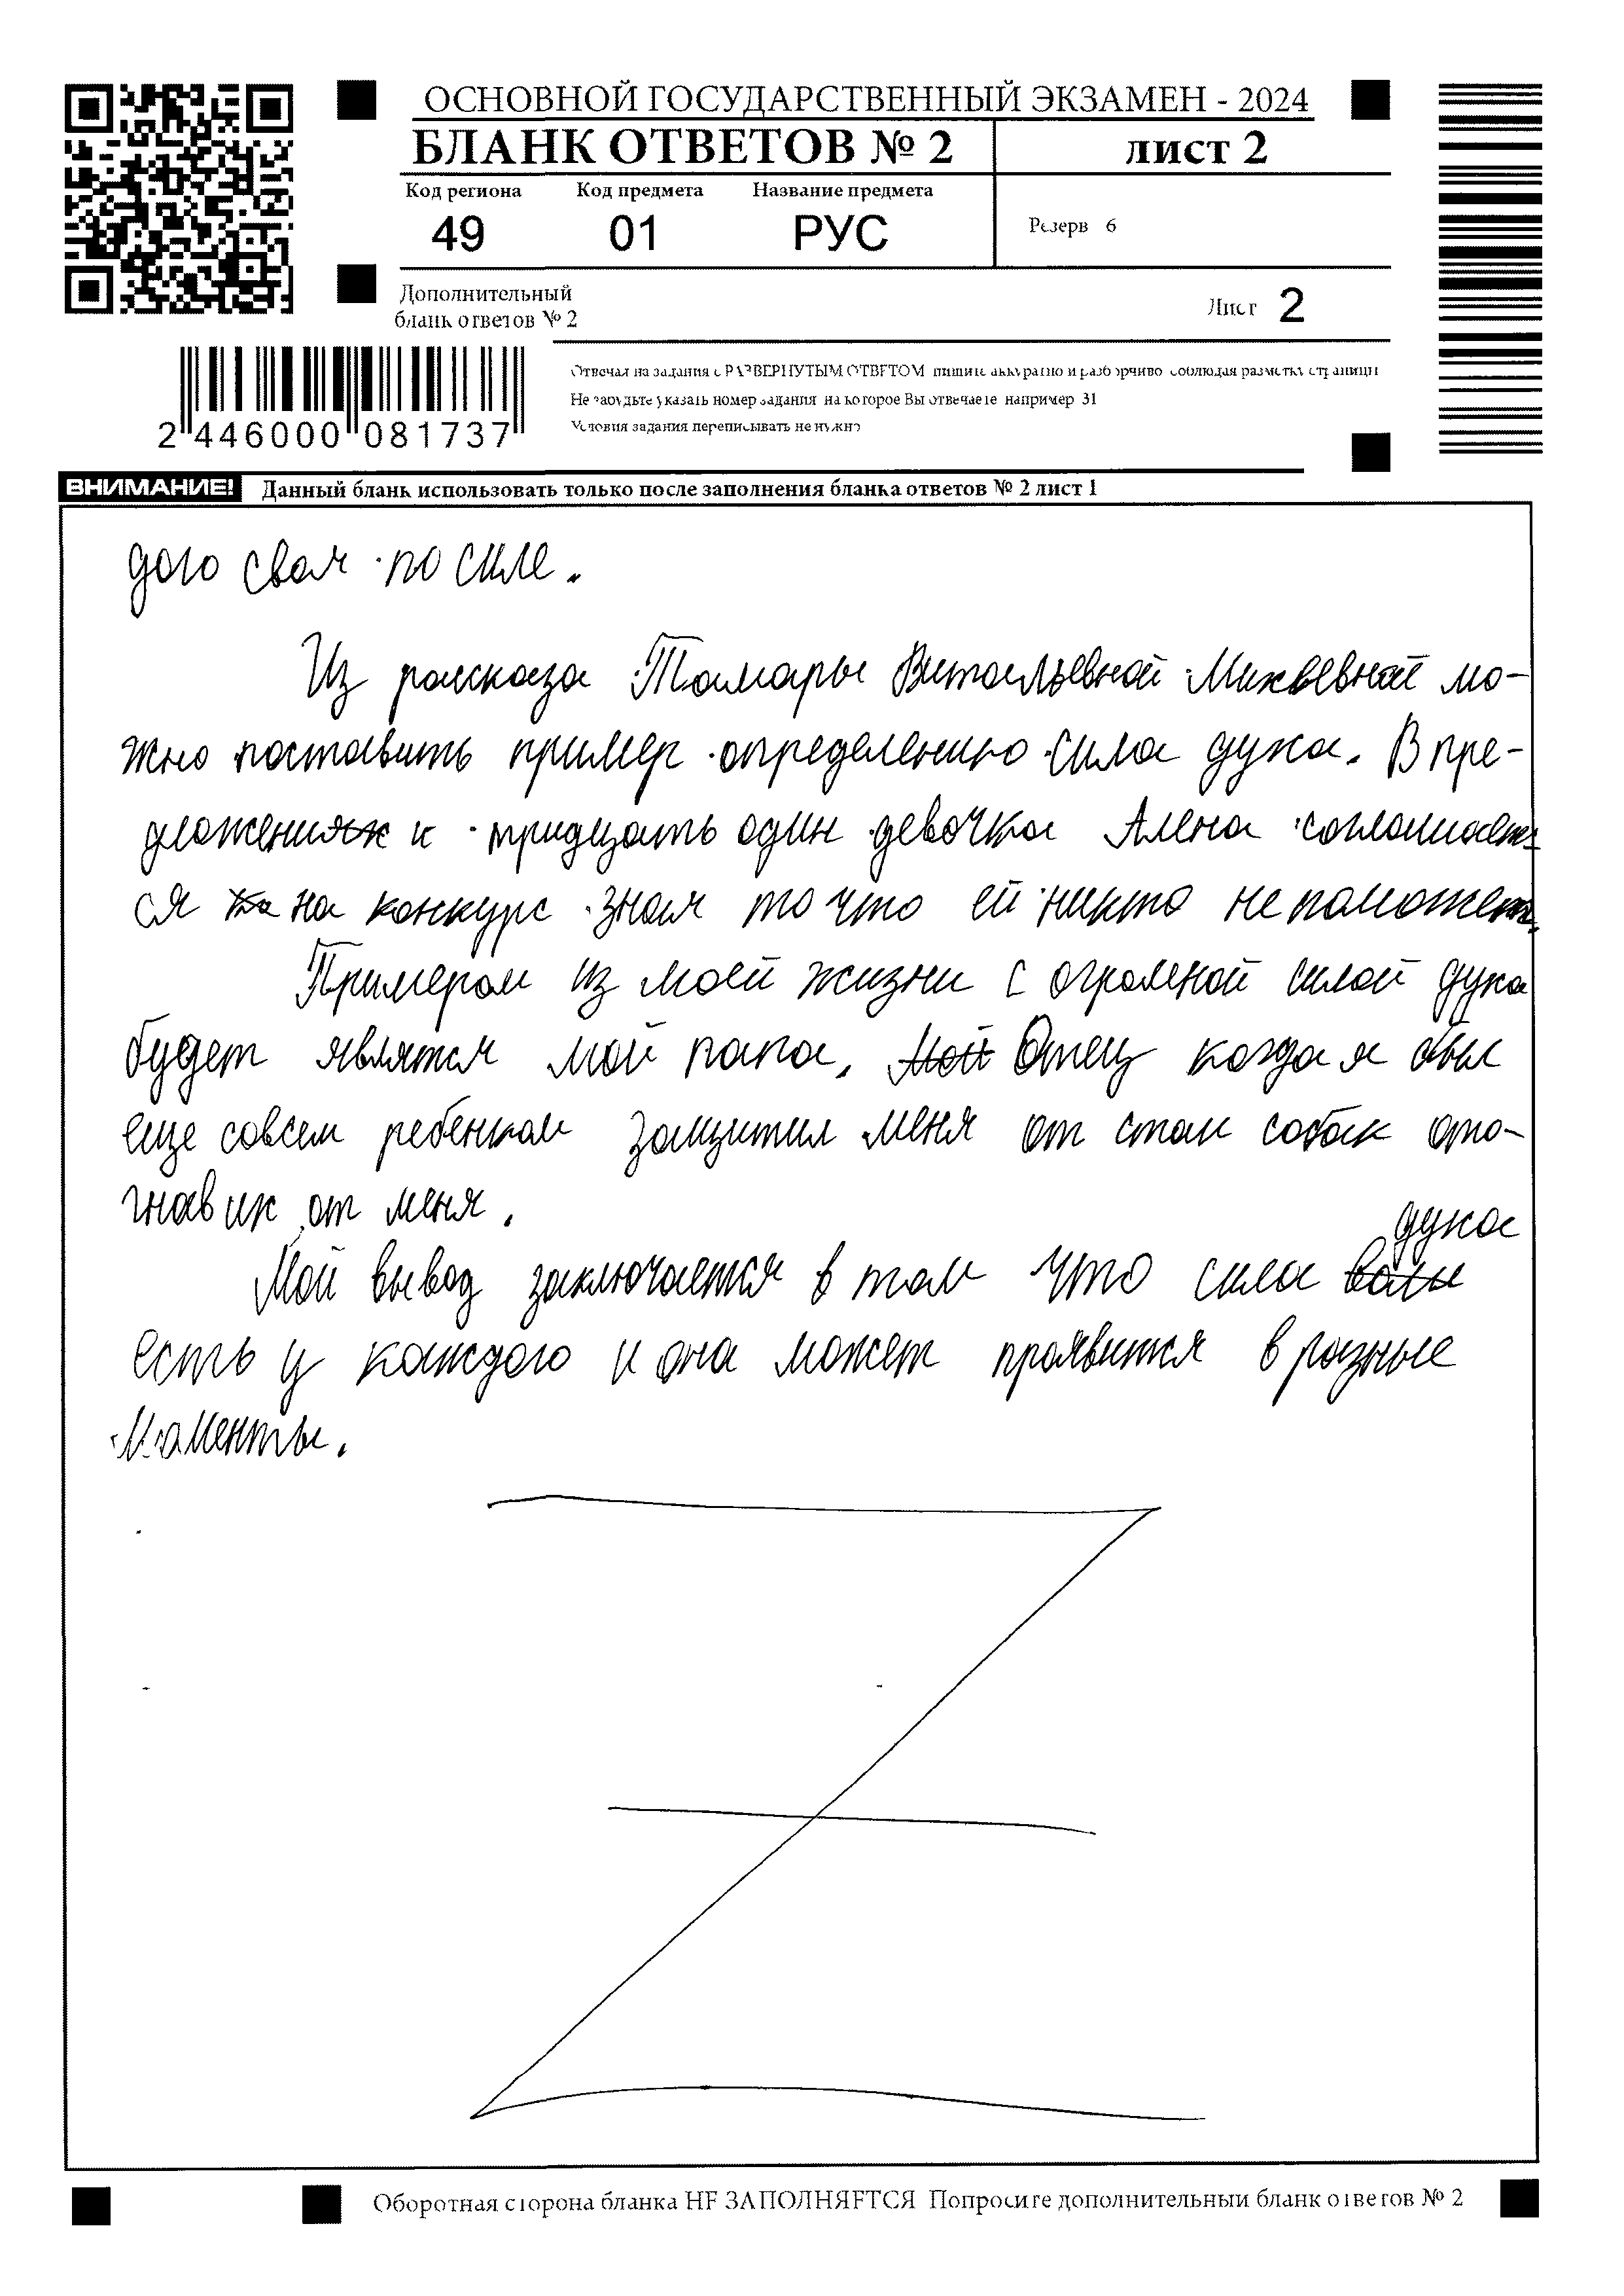 ОСНОВНОЙ ГОСУДАРСТВЕННЫЙ ЭКЗАМЕН - 2024
БЛАНК ОТВЕТОВ № 2 лист 2
Код региона Код предмета Название предмета
49 01 РУС
Резерв 6
Дополнительный
бланк ответов № 2
Лист 2
2 446000 081737
Отвечая на задания с РАЗВЕРНУТЫМ ОТВЕТОМ пишите аккуратно и разборчиво соблюдая разметку страницы
Не забудьте указать номер задания на которое Вы отвечаете например 31
Условия задания переписывать не нужно
ВНИМАНИЕ! Данный бланк использовать только после заполнения бланка ответов № 2 лист 1
дого своя по силе.
Из рассказа Тамары Витальевной Михеевной мо-
жно поставить пример определению сила духа. В пре-
дложениях и тридцать один девочка Алена соглашает-
ся на конкурс зная то что ей никто не поможет.
Примером из моей жизни с огромной силой духа
будет являтся мой папа. Мой Отец когда я был
еще совсем ребенком защитил меня от стаи собак ото-
гнав их от меня.
духа
Мой вывод заключается в том что сила воли
есть у каждого и она может проявится в разные
моменты.
Оборотная сторона бланка НЕ ЗАПОЛНЯЕТСЯ Попросите дополнительный бланк ответов № 2